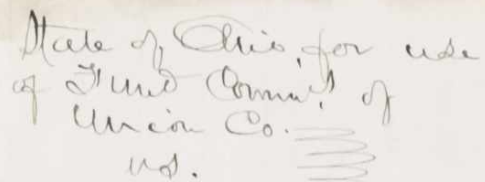 State of Ohio, for use
of Fund Commr's of
Union Co.
vs.